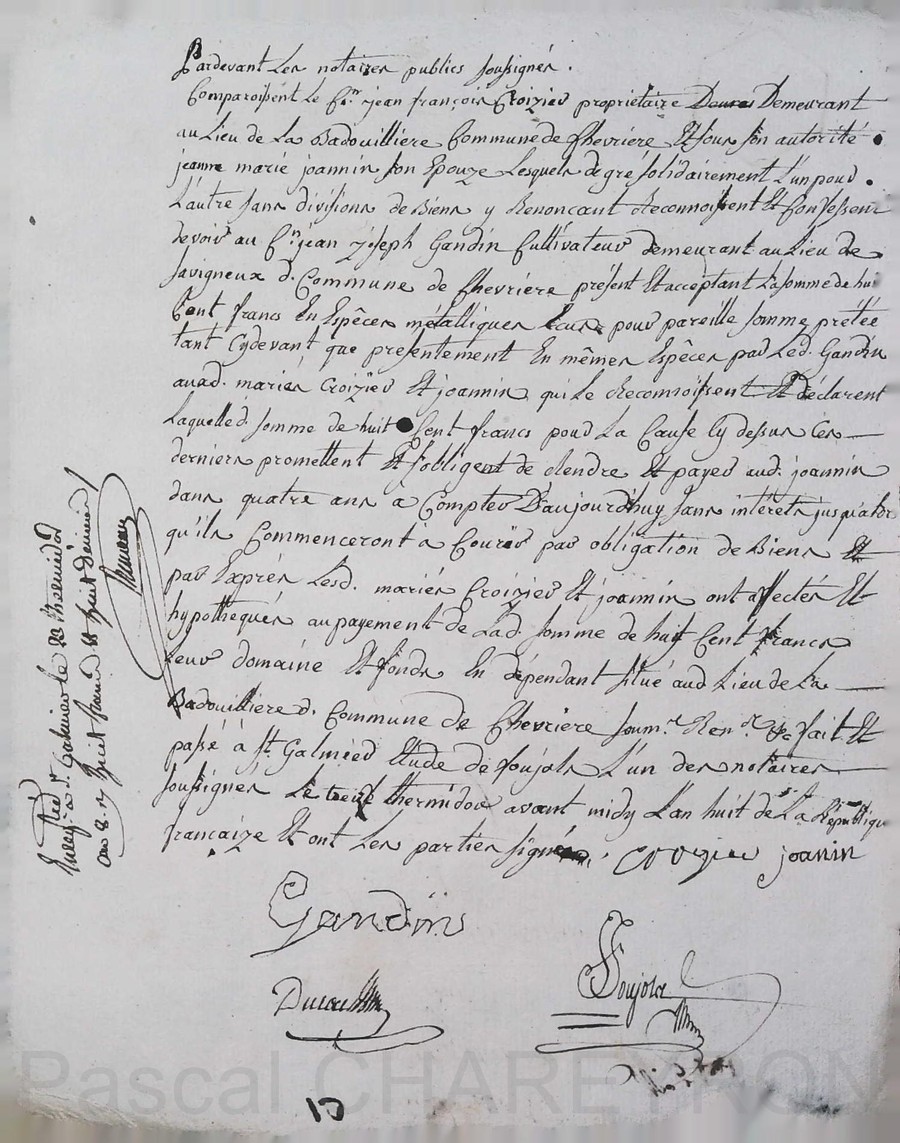 Pardevant Les notaires publics soussignés.
Comparoissent Le C.en jean françois Croizier propriétaire Demeurant
au Lieu de La Badouilliere Commune de Chevriere Et sous son autorité
jeanne marie joannin son Epouze Lesquels de gré solidairement L'un pour
L'autre sans divisions de Biens y Renoncant Reconnoissent Et Confessent
devoir au C.en jean joseph Gandin Cultivateur demeurant au Lieu de
savigneux d. Commune de Chevriere présent Et acceptant La somme de huit
Cent francs En Espêces métalliques pour pareille somme prétée
tant Cydevant que presentement En mêmes Espêces par Led. Gandin
auxd. mariés Croizier Et joannin qui Le Reconnoissent Et déclarent
Laquelle d. somme de huit Cent francs pour La Cause Cy dessus Ces
derniers promettent Et s'obligent de Rendre Et payer aud. joannin
dans quatre ans a Compter D'aujourd'huy sans intérêts jusqu'alor
qu'ils Commenceront à Courir par obligation de Biens Et
par Exprés Lesd. mariés Croizier Et joannin ont affectés Et
hypothequés au payement de Lad. somme de huit Cent francs
Leur domaine Et fonds En dépendant situé aud Lieu de La
Badouilliere d. Commune de Chevriere soum.n Ren.n &c fait Et
passé à St. Galmier Etude de Soujols L'un des notaires
soussignés Le treize thermidor avant midy L'an huit de La République
francaize Et ont Les parties signé. Croizier joanin
Gandin
Soujols
Enreg. à St. Galmier le thermidor
an 8. Reçu huit francs Et huit décimes
10
Pascal CHAREYRON